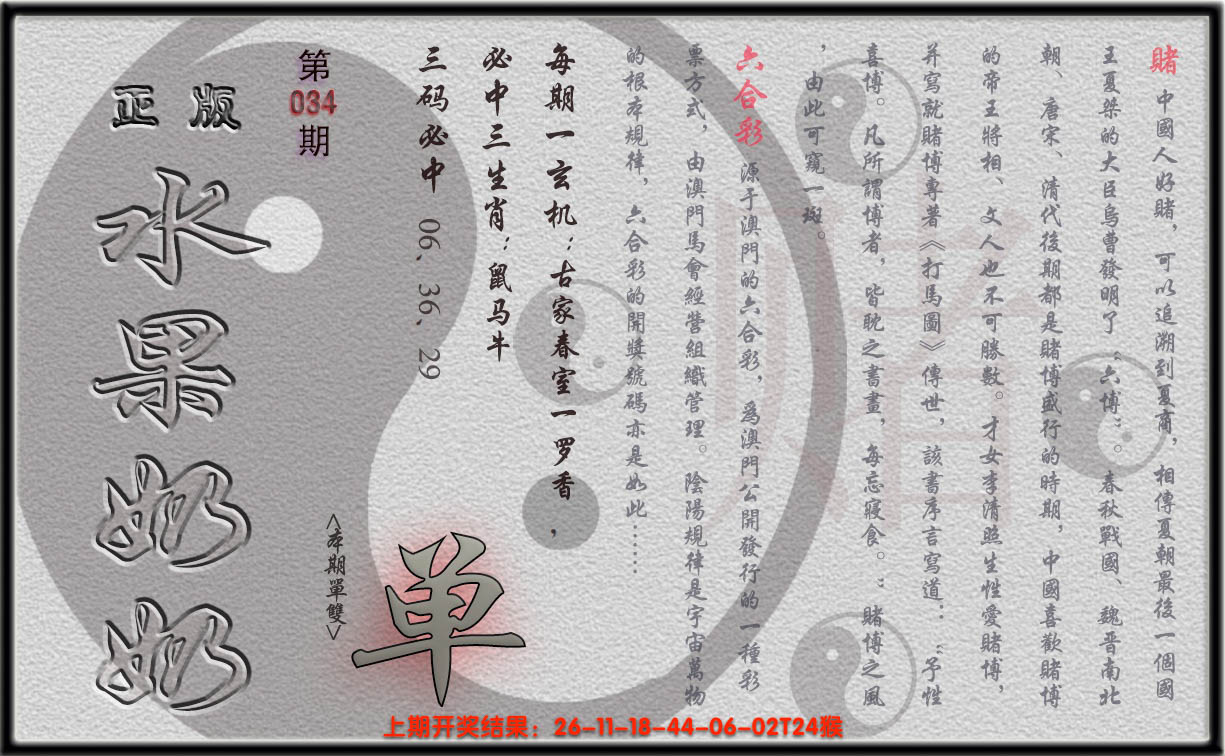 賭 中國人好賭，可以追溯到夏商，相傳夏朝最後一個國
王夏桀的大臣烏曹發明了“六博”。春秋戰國、魏晋南北
朝、唐宋、清代後期都是賭博盛行的時期，中國喜歡賭博
的帝王將相、文人也不可勝數。才女李清照生性愛賭博，
并寫就賭博專著《打馬圖》傳世，該書序言寫道：“予性
喜博。凡所謂博者，皆耽之書畫，每忘寢食。”賭博之風
，由此可窺一斑。
六合彩 源于澳門的六合彩，爲澳門公開發行的一種彩
票方式，由澳門馬會經營組織管理。陰陽規律是宇宙萬物
的根本規律，六合彩的開獎號碼亦是如此……
每期一玄机：古家春室一罗香，
必中三生肖：鼠马牛
三码必中 06、36、29
<本期單雙>
单
第034期
正版
水果奶奶
賭
上期开奖结果：26-11-18-44-06-02T24猴